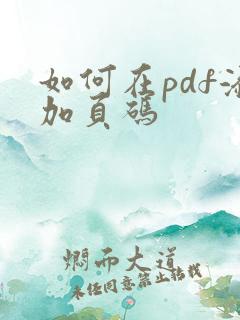 如何在pdf添
加页码
烟而大道
未经同意禁止转载